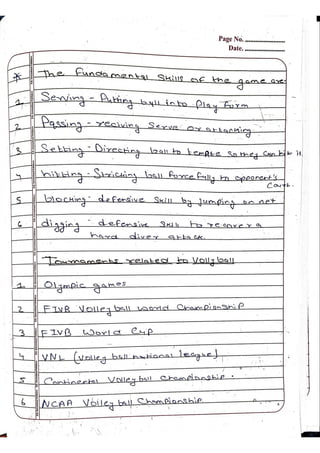 Page No. ....................
Date. ....................
* The Fundamental Skills of the game are:
1, Serving - Putting ball into play form
2 Passing - reciving Serve or attacking
3 Setting - Directing ball to so they can hit it
4 hitting - Stricking ball forcefully to opponent's
Court.
5 blocking - defensive Skill by jumping on net
6 digging - defensive Skill to recover a
hard attack.
Tournaments related to Vollyball
1. Olympic games
2 FIVB Volleyball world Championship
3 FIVB World Cup
4 VNL (Volley ball national league)
5 Continental Volleyball Championship.
6 NCAA Volley ball Championship